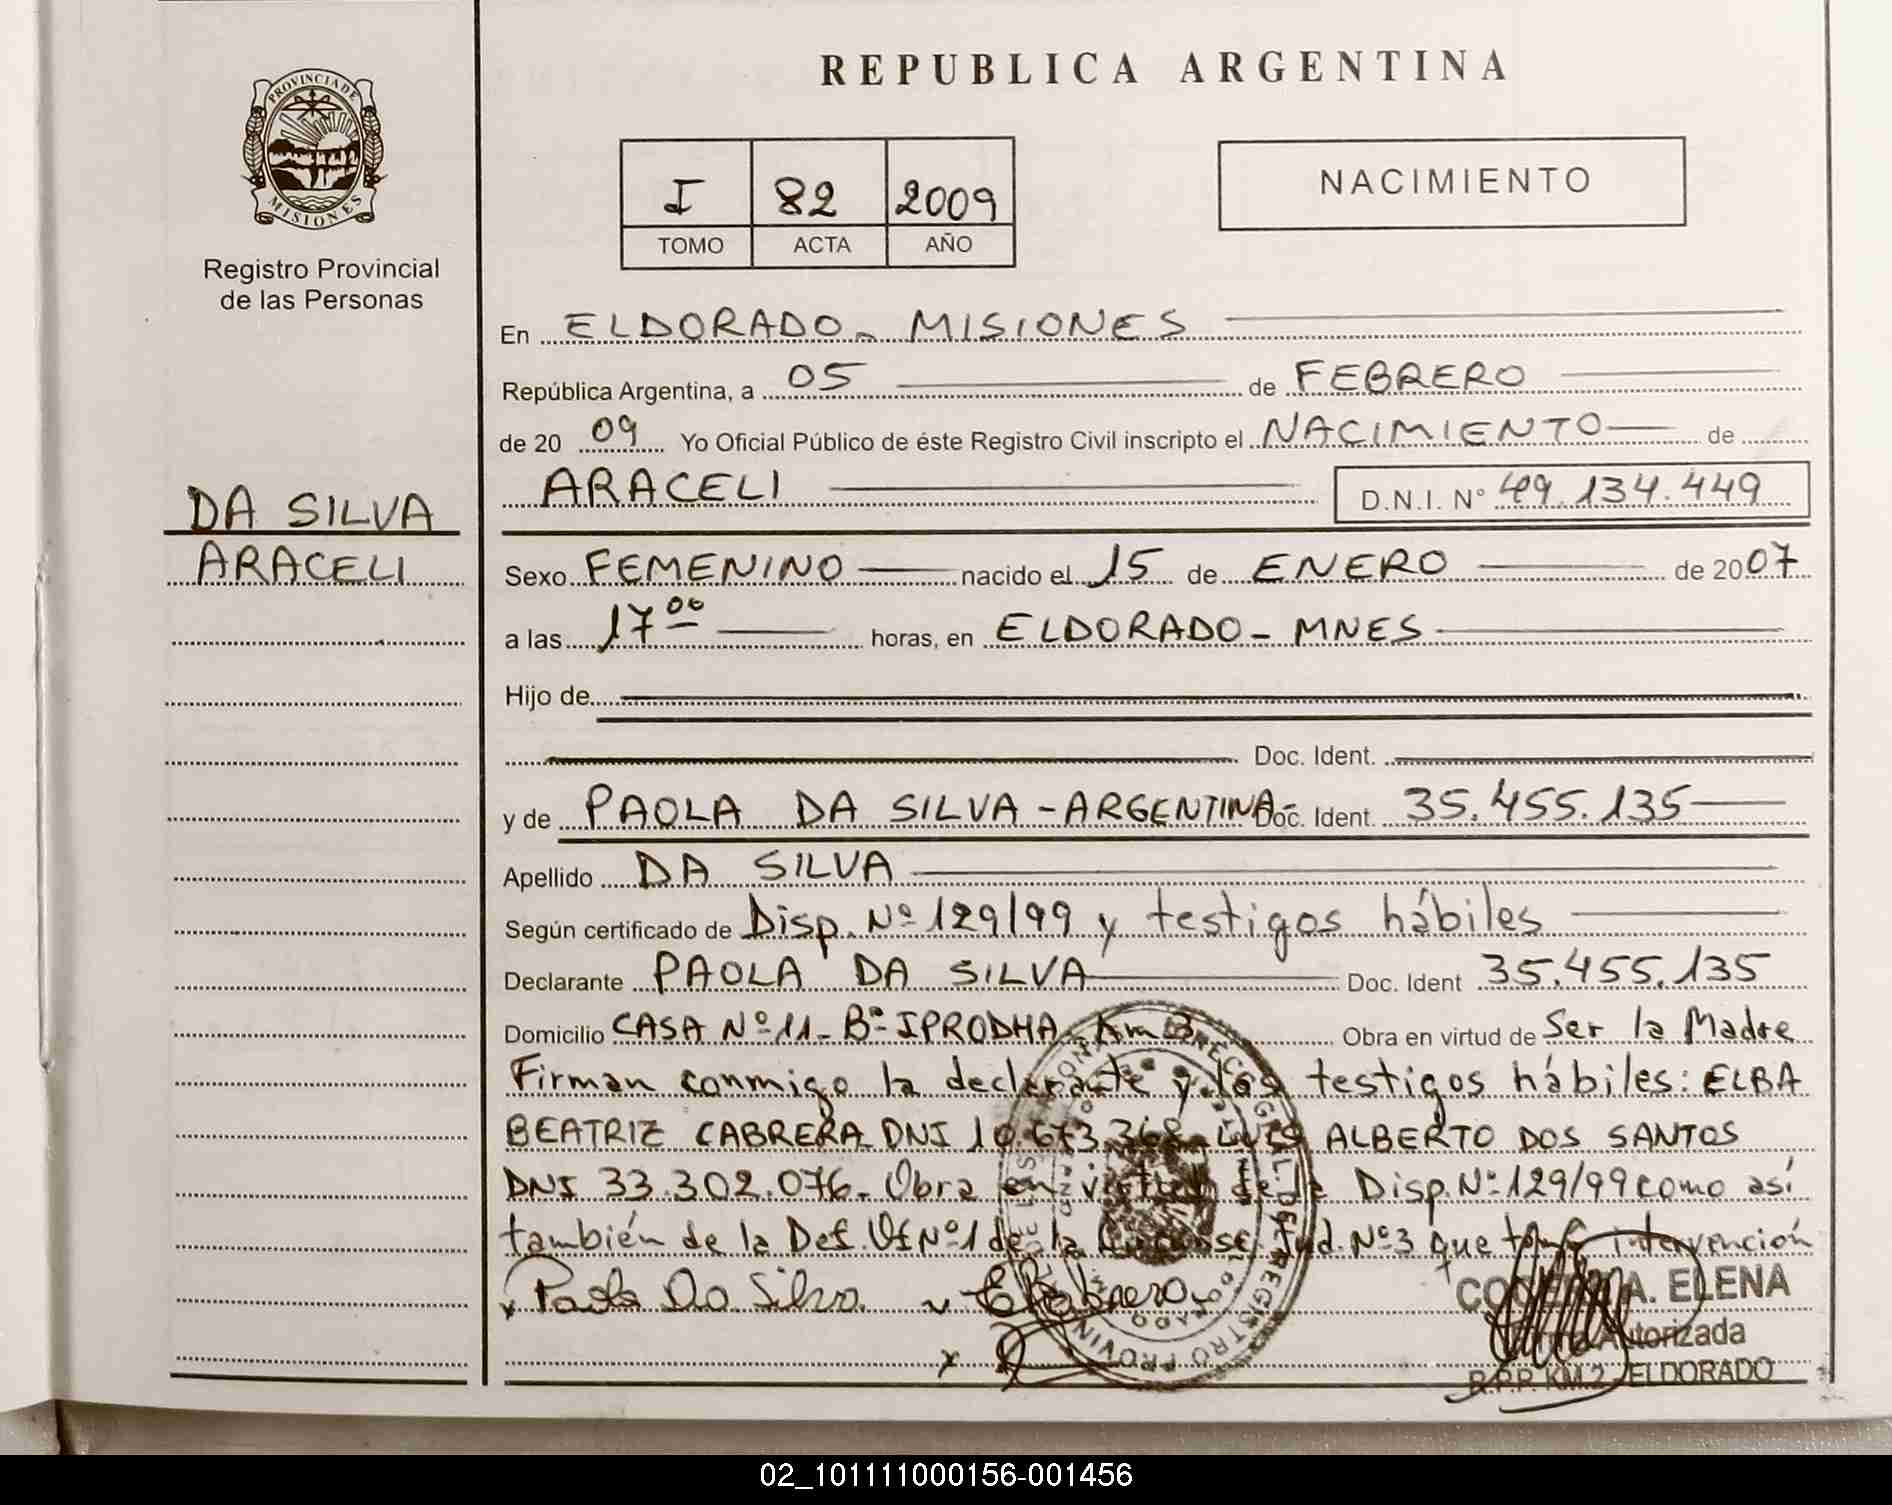 PROVINCIA DE
MISIONES
Registro Provincial
de las Personas
DA SILVA
ARACELI
REPUBLICA ARGENTINA
I 82 2009
TOMO ACTA AÑO
NACIMIENTO
En ELDORADO - MISIONES
República Argentina, a 05 de FEBRERO
de 20 09 Yo Oficial Público de éste Registro Civil inscripto el NACIMIENTO de
ARACELI D.N.I. N° 49.134.449
Sexo FEMENINO nacido el 15 de ENERO de 2007
a las 17 00 horas, en ELDORADO - MNES
Hijo de
Doc. Ident.
y de PAOLA DA SILVA - ARGENTINA - Doc. Ident. 35.455.135
Apellido DA SILVA
Según certificado de Disp. Nº 129/99 y testigos hábiles
Declarante PAOLA DA SILVA Doc. Ident 35.455.135
Domicilio CASA Nº 11 - Bº IPRODHA Km 3 Obra en virtud de Ser la Madre
Firman conmigo la declarante y los testigos hábiles: ELBA
BEATRIZ CABRERA DNI 10.673.368 - LUIS ALBERTO DOS SANTOS
DNI 33.302.076 - Obra en virtud de la Disp. Nº 129/99 como así
también de la Def. Of Nº 1 de la Jud. Nº 3 que tomó intervención
Paola Da Silva ECabrera
A. ELENA
Firma Autorizada
R.P.P. KM.2 ELDORADO
02_101111000156-001456